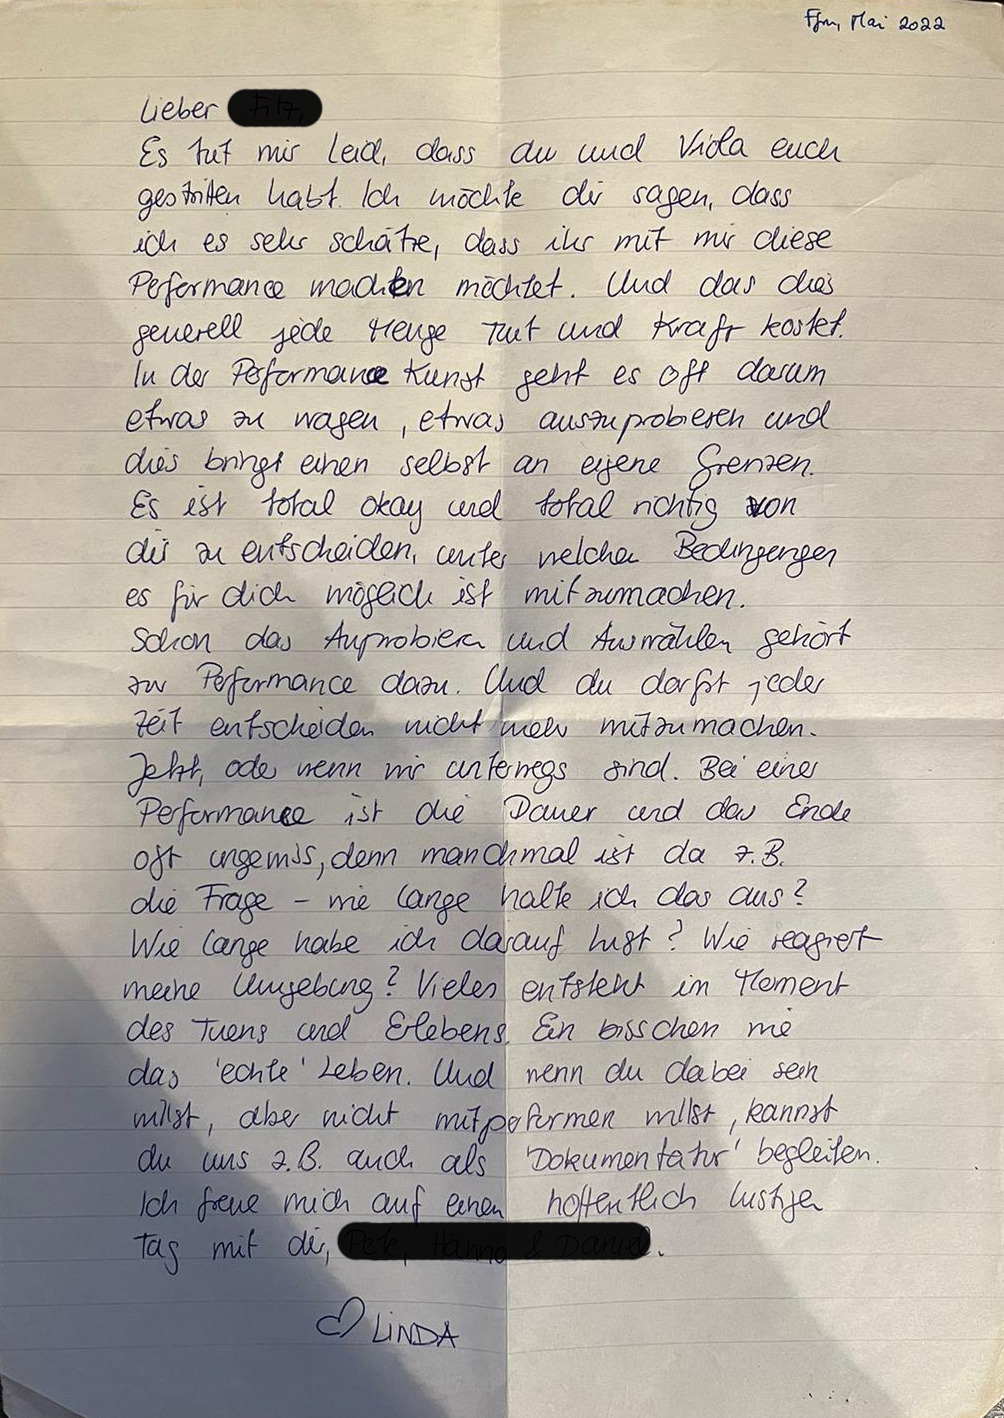 Ffm, Mai 2022
Lieber
Es tut mir Leid, dass du und Viola euch
gestritten habt. Ich möchte dir sagen, dass
ich es sehr schätze, dass ihr mit mir diese
Peformance machen möchtet. Und das dies
generell jede Menge Mut und Kraft kostet.
In der Peformance Kunst geht es oft darum
etwas zu wagen, etwas auszuprobieren und
dies bringt einen selbst an eigene Grenzen.
Es ist total okay und total richtig von
dir zu entscheiden, unter welchen Bedingungen
es für dich möglich ist mitzumachen.
Schon das Auprobieren und Auswählen gehört
zur Peformance dazu. Und du darfst jeder
Zeit entscheiden nicht mehr mitzumachen.
Jetzt, oder wenn wir unterwegs sind. Bei einer
Performance ist die Dauer und das Ende
oft ungewiss, denn manchmal ist da z.B.
die Frage – wie lange halte ich das aus?
Wie lange habe ich darauf Lust? Wie reagiert
meine Umgebung? Vieles entsteht im Moment
des Tuens und Erlebens. Ein bisschen wie
das 'echte' Leben. Und wenn du dabei sein
willst, aber nicht mitperformen willst, kannst
du uns z.B. auch als 'Dokumentatur' begleiten.
Ich freue mich auf einen hoffentlich lustigen
Tag mit dir,
♡ LINDA